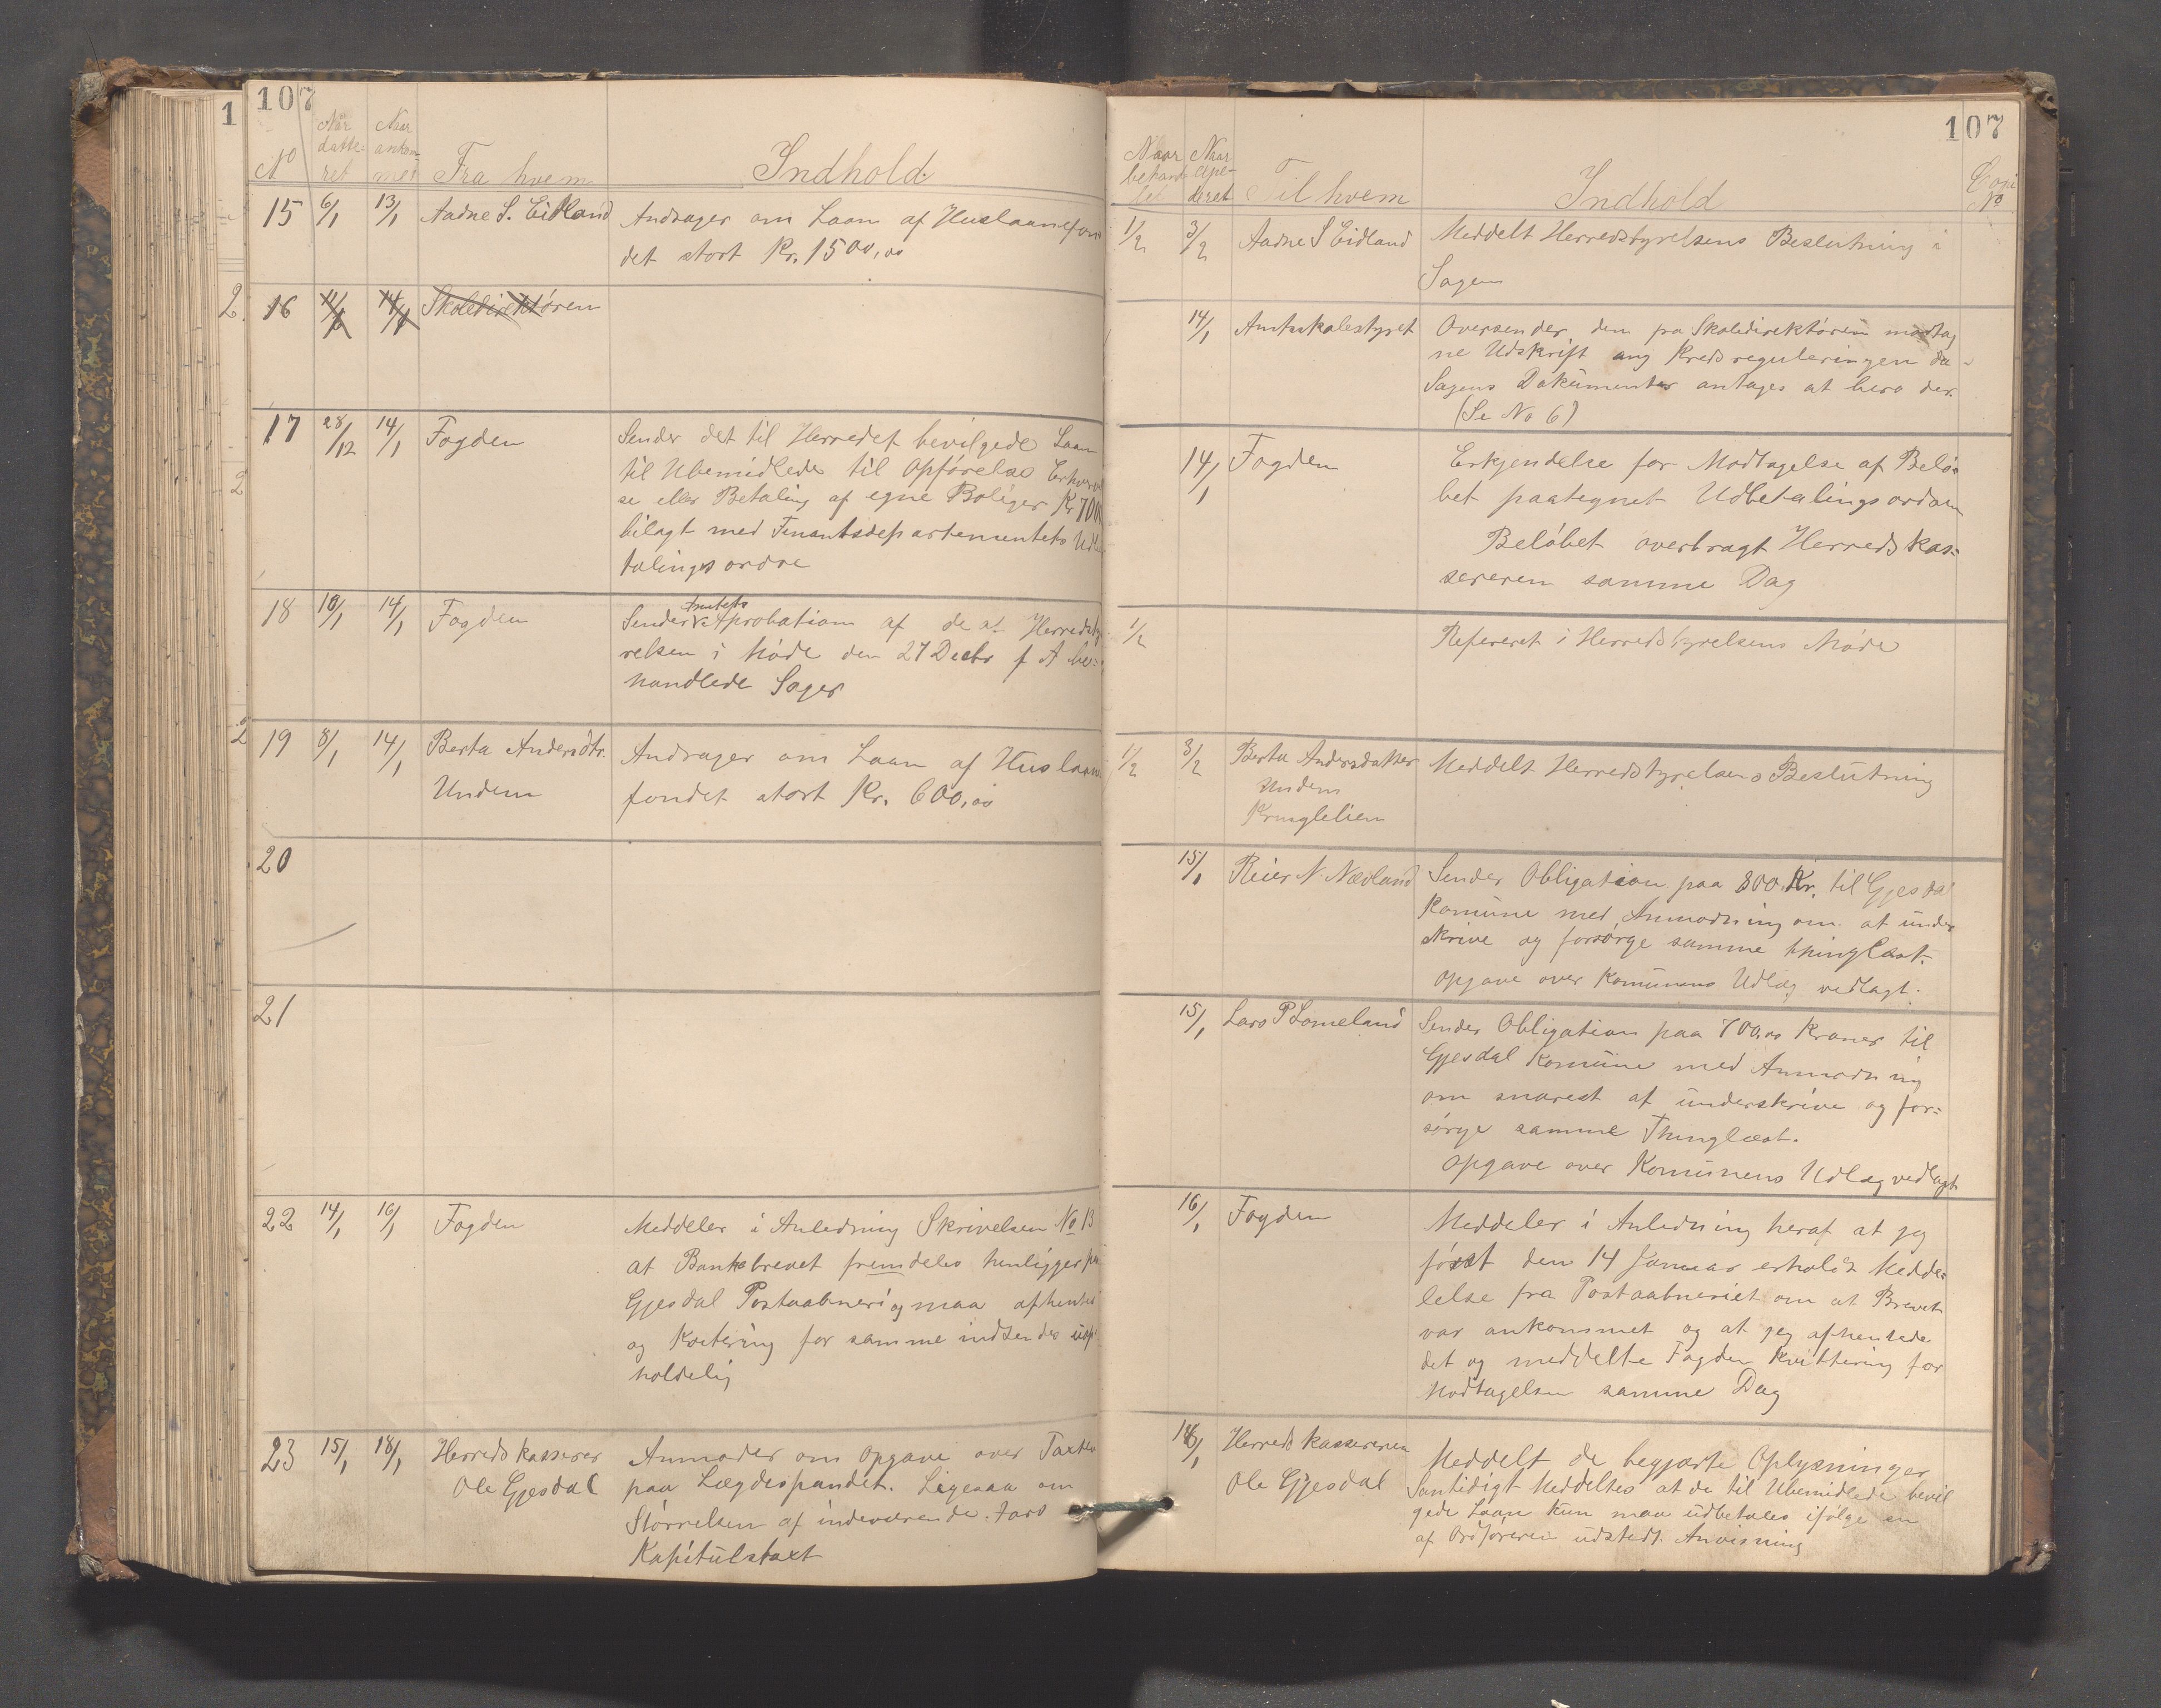 107
1
No
Naar datte- ret
Naar ankom- met
Fra hvem
Indhold
15 6/1 13/1 Aadne S. Eidland Andrager om Laan af Huslaanefon
det stort Kr. 1500,00
2
16 14/1 Skoledirektøren
17 28/12 14/1 Fogden Sender det til Herredet bevilgede Laan
2
til Ubemidlede til Opførelse Erhverv
se eller Betaling af egne Boliger Kr 700
bilagt med Finantsdepartementets Udbe
talings ordre
Amtets
18 10/1 14/1 Fogden Sender Aprobation af de af Herredsty
relsen i Møde den 27 Decbr f A be=
handlede Sager
2
19 8/1 14/1 Berta Andersdtr. Andrager om Laan af Huslaane
Undem fondet stort Kr. 600,00
20
21
22 14/1 16/1 Fogden Meddeler i Anledning Skrivelsen No 13
at Bankebrevet fremdeles henligger paa
Gjesdal Postaabneri og maa afhentes
og Kvitering for samme indsendes uop
holdelig
23 15/1 18/1 Herredskasserer Anmoder om Opgave over Taxten
Ole Gjesdal paa Lægdespandet. Ligesaa om
Størrelsen af indeværende Aars
Kapitulstaxt
107
Naar behand- let
Naar expe- deret
Til hvem
Indhold
Copi No
1/2 3/2 Aadne S Eidland Meddelt Herredstyrelsens Beslutning i
Sagen
14/1 Amtsskolestyret Oversender den fra Skoledirektøren modtag
ne Udskrift ang Kredsreguleringen da
Sagens Dokumenter antages at bero der.
(Se No 6)
14/1 Fogden Erkjendelse for Modtagelse af Belø-
bet paategnet Udbetalingsordren
Beløbet overbragt Herredskas=
sereren samme Dag
1/2 Refereret i Herredstyrelsens Møde
1/2 3/2 Berta Andersdatter Meddelt Herredstyrelsens Beslutning
Undem
Kringlelien
15/1 Reier N. Nævland Sender Obligation paa 800 Kr. til Gjesdal
Komune med Anmodning om at under
skrive og forsørge samme thinglæst.
Opgave over Komunens Udlæg vedlagt.
15/1 Lars P Lomeland Sender Obligation paa 700,00 Kroner til
Gjesdal Komune med Anmodning
om snarest at underskrive og for=
sørge samme Thinglæst.
Opgave over Komunens Udlæg vedlagt
16/1 Fogden Meddeler i Anledning heraf at jeg
først den 14 Januar erholdt Medde=
lelse fra Postaabneriet om at Brevet
var ankommet og at jeg afhentede
det og meddelte Fogden Kvittering for
Modtagelsen samme Dag
18/1 Herredskassereren Meddelt de begjærte Oplysninger
Ole Gjesdal Samtidigt Meddeltes at de til Ubemidlede bevil
gede Laan kun maa udbetales ifølge en
af Ordføreren udstedt Anvisning